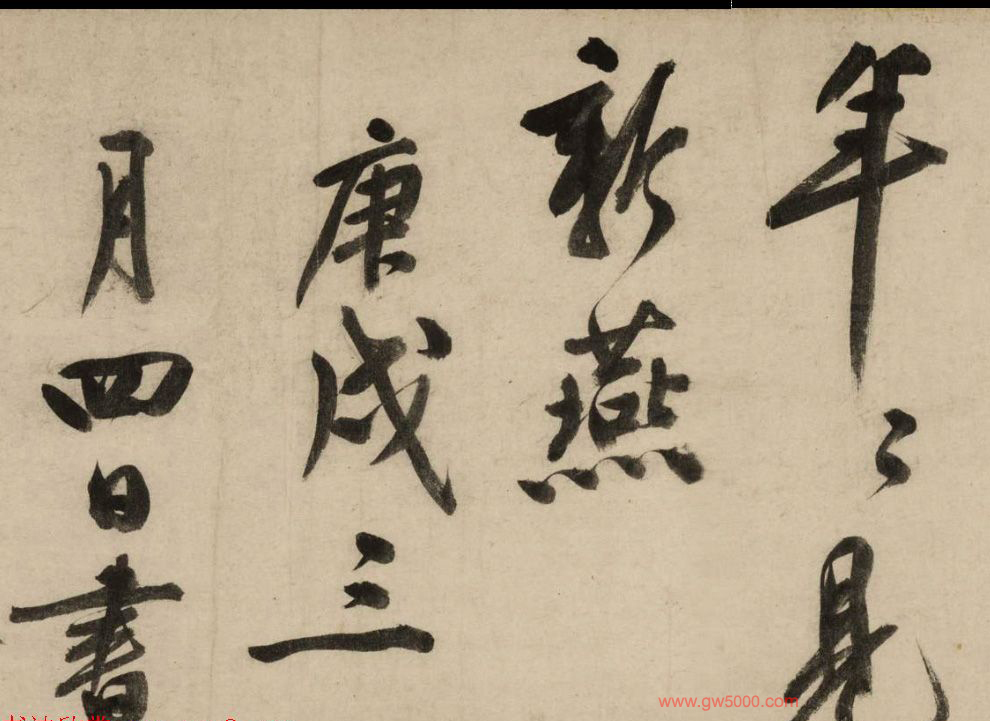 年〻見
新燕
庚戌三
月四日書
www.gw5000.com